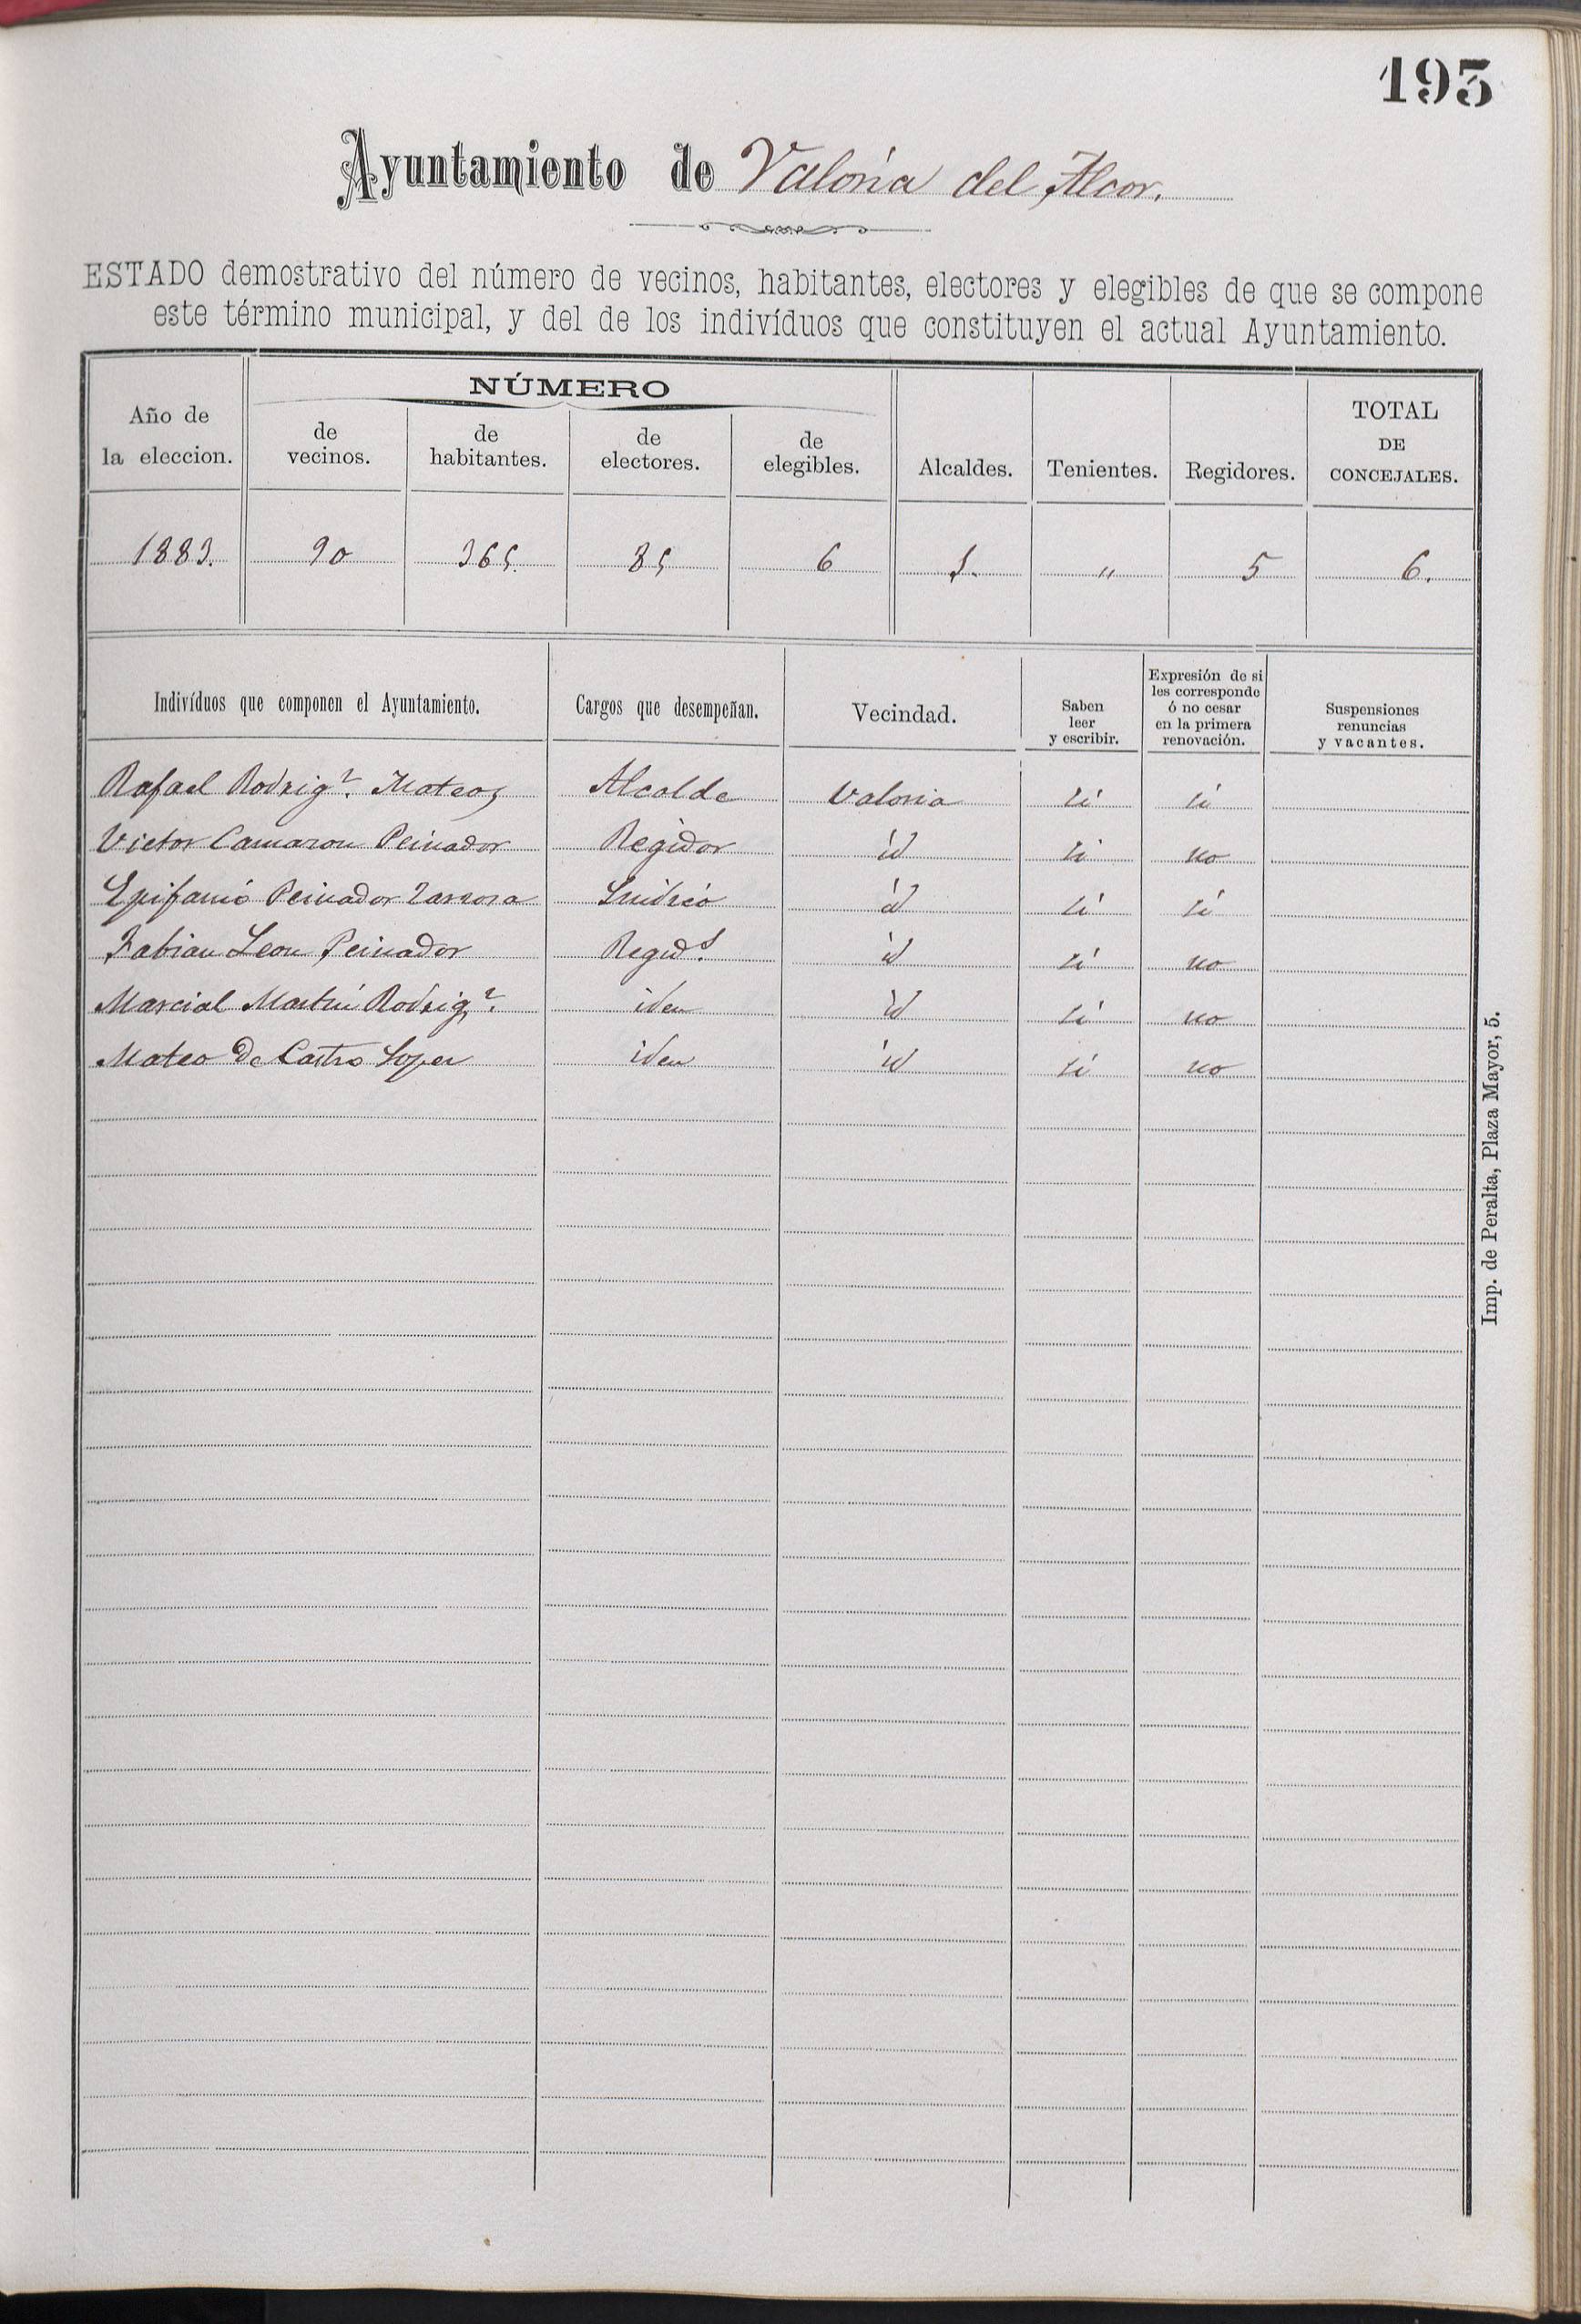 193
Ayuntamiento de Valoria del Alcor.
ESTADO demostrativo del número de vecinos, habitantes, electores y elegibles de que se compone
este término municipal, y del de los indivíduos que constituyen el actual Ayuntamiento.
NÚMERO
Año de la eleccion. de vecinos. de habitantes. de electores. de elegibles. Alcaldes. Tenientes. Regidores. TOTAL DE CONCEJALES.
1883. 90 365. 85 6 1. " 5 6.
Indivíduos que componen el Ayuntamiento. Cargos que desempeñan. Vecindad. Saben leer y escribir. Expresión de si les corresponde ó no cesar en la primera renovación. Suspensiones renuncias y vacantes.
Rafael Rodrigz. Mateos Alcalde Valoria si si
Victor Camazon Peinador Regidor id si no
Epifanio Peinador Zamora Sindico id si si
Fabian Leon Peinador Regidr. id si no
Marcial Martin Rodrigz. iden id si no
Mateo De Castro Lopez iden id si no
Imp. de Peralta, Plaza Mayor, 5.